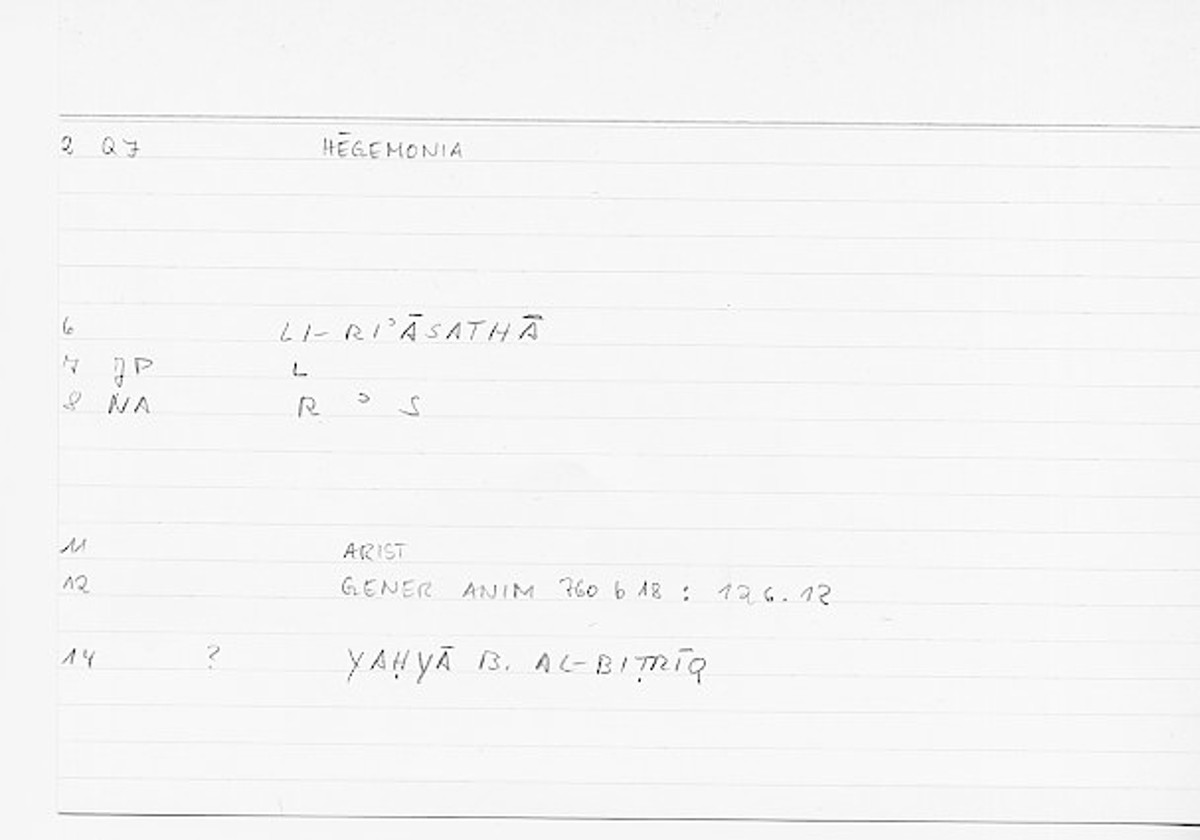 2 Q7 HĒGEMONIA
6 LI-RIʾĀSATHĀ
7 JP L
8 NA R ʾ S
11 ARIST
12 GENER ANIM 760 b 18 : 126.12
14 ? YAḤYĀ B. AL-BIṬRĪQ